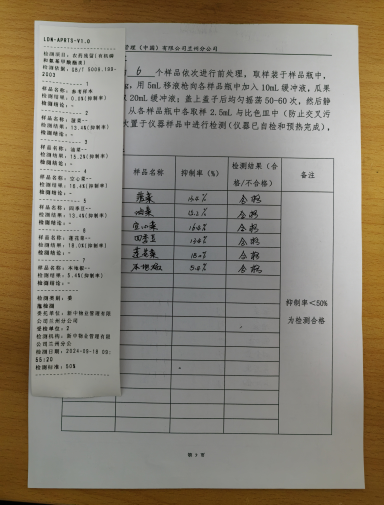 LDN-APRTS-V1.0
检测项目: 农药残留(有机磷
和氨基甲酸酯类)
检测依据: GB/T 5009.199-
2003
1
样品名称: 参考样本
检测结果: 0.0%(抑制率)
检测结论: -
2
检测结果: 13.4%(抑制率)
检测结论: -
3
样品名称: 油菜--
检测结果: 15.2%(抑制率)
检测结论: -
4
样品名称: 空心菜--
检测结果: 16.4%(抑制率)
检测结论: -
5
样品名称: 四季豆--
检测结果: 13.4%(抑制率)
检测结论: -
6
样品名称: 莲花菜--
检测结果: 18.0%(抑制率)
检测结论: -
7
检测结果: 5.4%(抑制率)
检测结论: -
检测类别: 委
托检测
委托单位: 新中物业管理有限
公司兰州分公司
受检单位: 2
检测机构: 新中物业管理有限
公司兰州分公
检测日期: 2024-03-18 09:
55:20
检测标准: 50%
管理(中国)有限公司兰州分公司
6 个样品依次进行前处理,取样装于样品瓶中,
g,用 5mL 移液枪向各样品瓶中加入 10mL 缓冲液,瓜果
20mL 缓冲液;盖上盖子后均匀摇荡 50-60 次,然后静
从各样品瓶中各取样 2.5mL 与比色皿中(防止交叉污
放置于仪器样品中进行检测(仪器已自检和预热完成),
样品名称 抑制率(%) 检测结果(合格/不合格) 备注
合格
油菜 15.2% 合格
空心菜 16.4% 合格
四季豆 13.4% 合格
莲花菜 18.0% 合格
5.4% 合格
抑制率<50%
为检测合格